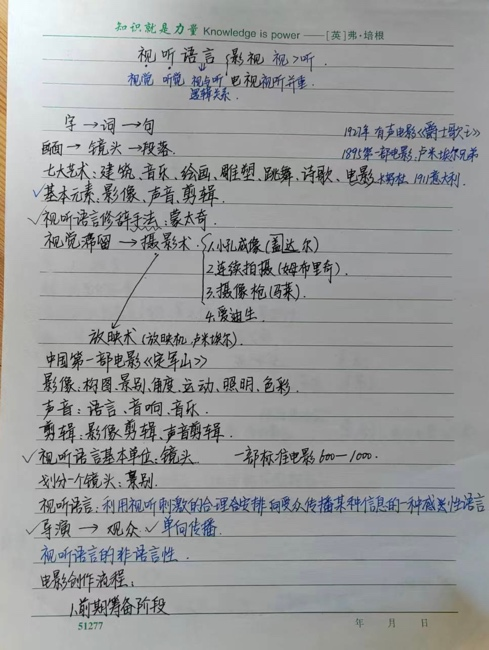 知识就是力量 Knowledge is power ——[英]弗·培根
视听语言 影视 视>听
视觉 听觉 视与听 电视视听并重
逻辑关系
字→词→句 1927年 有声电影《爵士歌王》
画面→镜头→段落. 1895第一部电影,卢米埃尔兄弟
七大艺术:建筑、音乐、绘画、雕塑、跳舞、诗歌、电影 1911意大利.
✓基本元素、影像、声音、剪辑.
✓视听语言修辞手法:蒙太奇
视觉滞留→摄影术. 1.小孔成像(盖达尔)
2.连续拍摄(姆布里奇).
3.摄像枪(马莱).
4.爱迪生.
放映术(放映机,卢米埃尔).
中国第一部电影《定军山》
影像、构图、景别、角度、运动、照明、色彩.
声音:语言、音响、音乐.
剪辑:影像剪辑、声音剪辑.
✓视听语言基本单位:镜头 一部标准电影600—1000.
划分一个镜头:景别.
视听语言:利用视听刺激的合理安排向受众传播某种信息的一种感类性语言
✓导演→观众 ✓单向传播.
视听语言的非语言性.
电影创作流程:
1.前期筹备阶段
51277 年 月 日